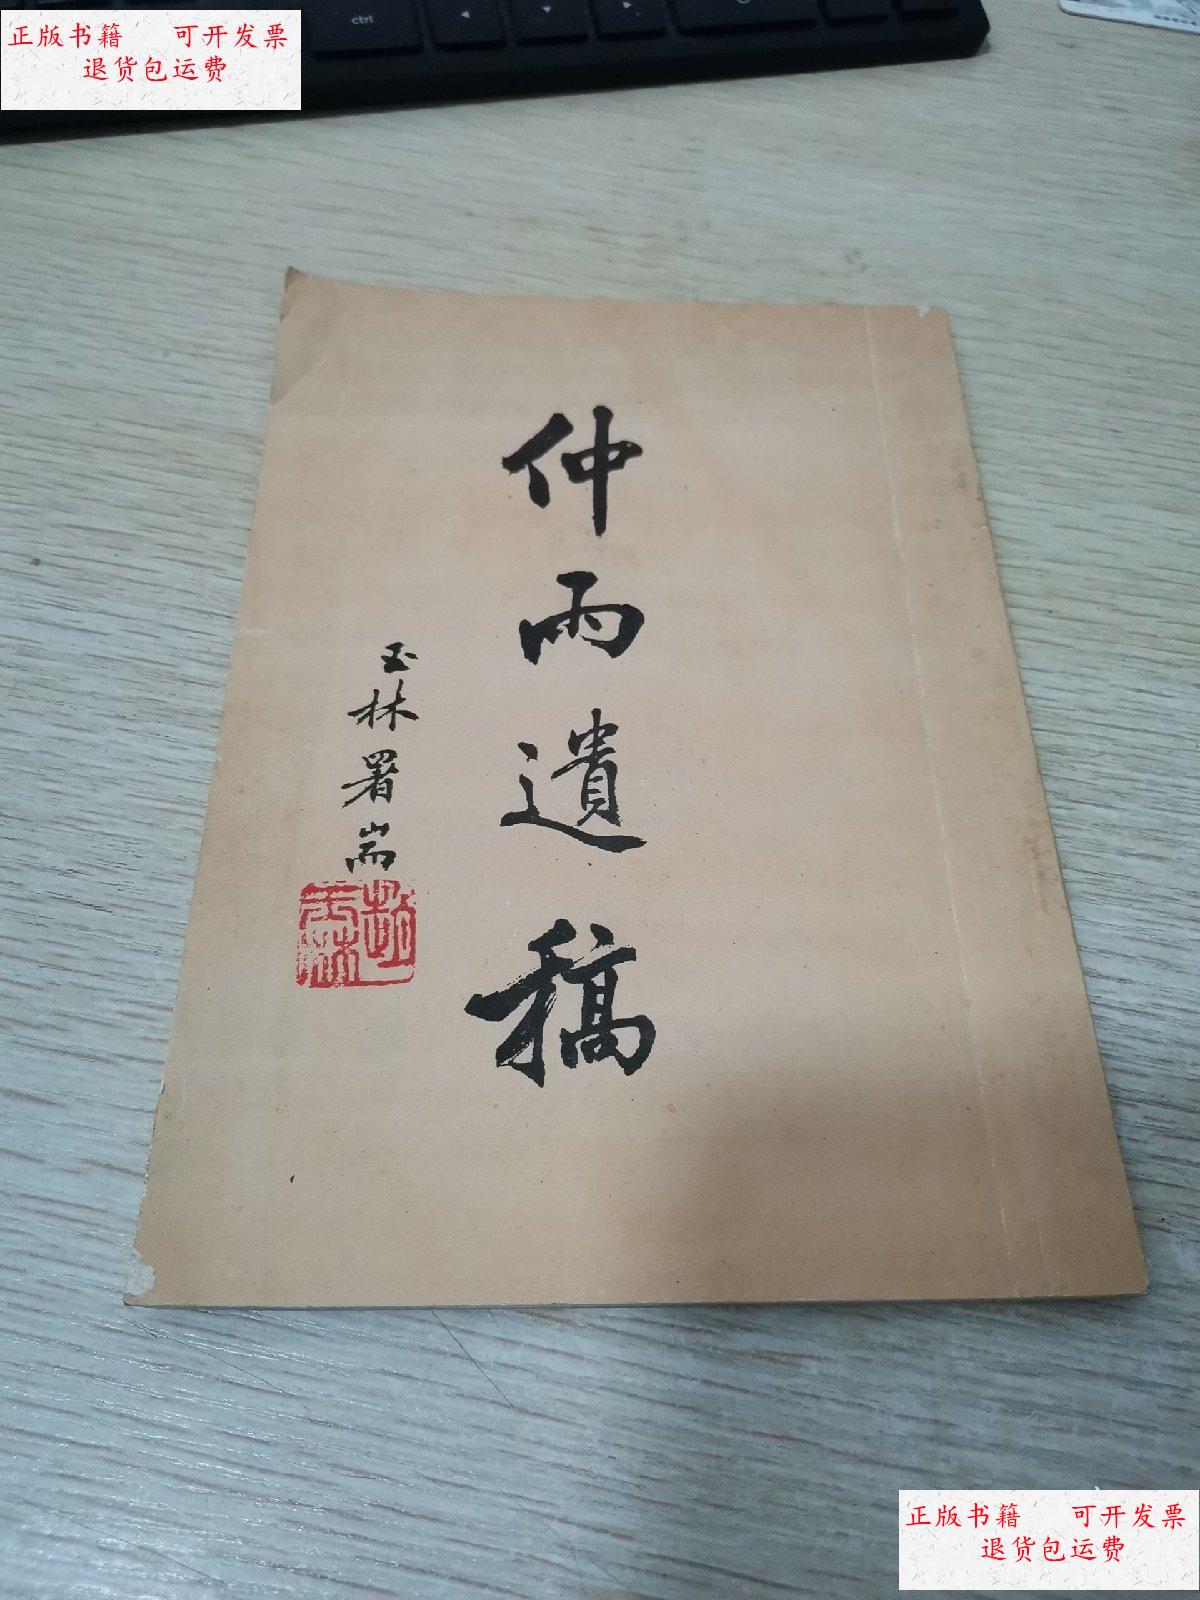 正版书籍 可开发票
退货包运费
ctrl
仲雨遺稿
玉林署耑
正版书籍 可开发票
退货包运费